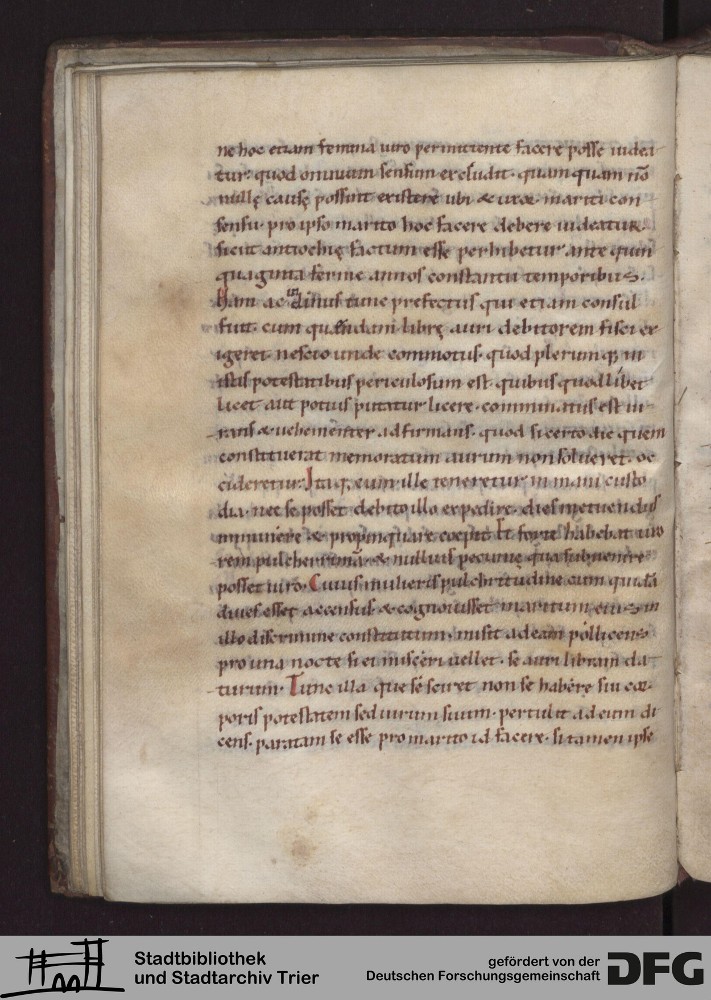 ne hoc etiam femina uiro permittente facere posse uidea
tur. quod omnium sensum excludit. quam quam nō
nullę causę possint existere ubi & uxor mariti con
sensu. pro ipso marito hoc facere debere uideatur.
sicut antiochię factum esse perhibetur ante quin
quaginta ferme annos constantii temporibus.
Nam acindinus tunc prefectus qui etiam consul
fuit. cum quendam librę auri debitorem fisci ex
igeret. nescio unde commotus. quod plerumq; in
istis potestatibus periculosum est. quibus quodlibet
licet aut potius putatur licere. comminatus est iu
rans & uehementer adfirmans. quod si certo die quem
constituerat memoratum aurum non solueret. oc
cideretur. Itaq; cum ille teneretur inmani custo
dia. nec se posset debito illo expedire. dies metuendus
imminere & propinquare coepit. Et forte habebat uxo
rem pulcherrimā. & nullius pecunię qua subuenire
posset uiro. Cuius mulieris pulchritudine cum quidā
diues esset accensus. & cognouisset maritum eius in
illo discrimine constitutum. misit ad eam pollicens
pro una nocte si ei misceri uellet. se auri libram da
turum. Tunc illa que se sciret non se habere sui cor
poris potestatem sed uirum suum. pertulit ad eum di
cens. paratam se esse pro marito id facere. si tamen ipse
Stadtbibliothek
und Stadtarchiv Trier
gefördert von der
Deutschen Forschungsgemeinschaft
DFG